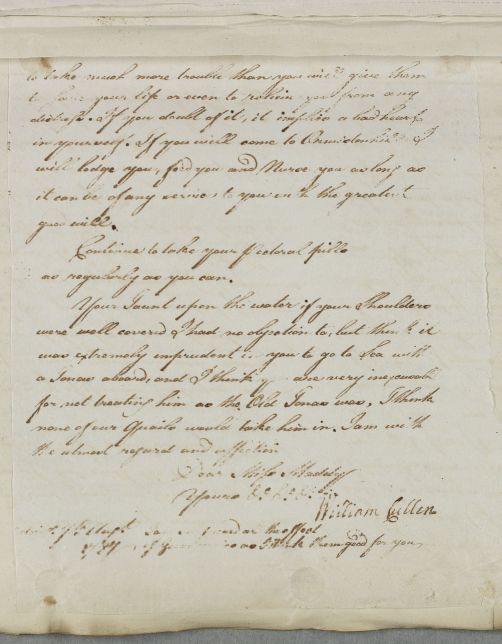 to take much more trouble than you will give them
to save your life or even to relieve you from any
distress. If you doubt of it, it implies a bad heart
in yourself. If you will come to Ormistonhill I
will lodge you, feed you and Nurse you as long as
it can be of any service to you with the greatest
good will.
Continue to take your pectoral pills
as regularly as you can.
Your Jaunt upon the water if your Shoulders
were well covered I had no objection to, but think it
was extremely imprudent in you to go to Sea with
a Jonas aboard, and I think you are very inexcusable
for not treating him as the Old Jonas was. I think
none of our Quails would take him in. I am with
the utmost regard and affection
Dear Miss
Yours
William Cullen
the effect
of as I think them good for you